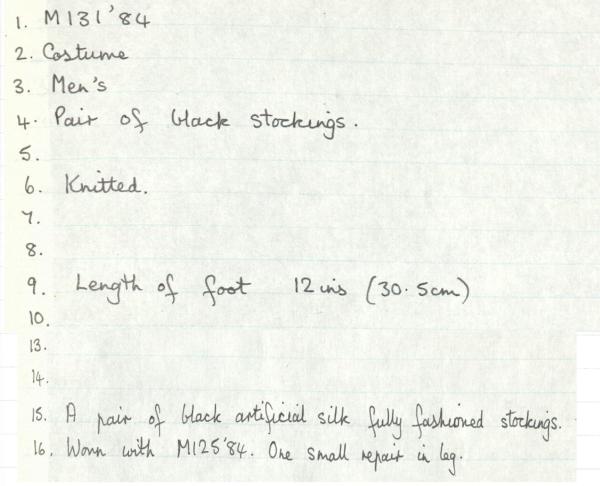 1. M131'84
2. Costume
3. Men's
4. Pair of black stockings.
5.
6. Knitted.
7.
8.
9. Length of foot 12 ins (30.5cm)
10.
13.
14.
15. A pair of black artificial silk fully fashioned stockings.
16. Worn with M125'84. One small repair in leg.